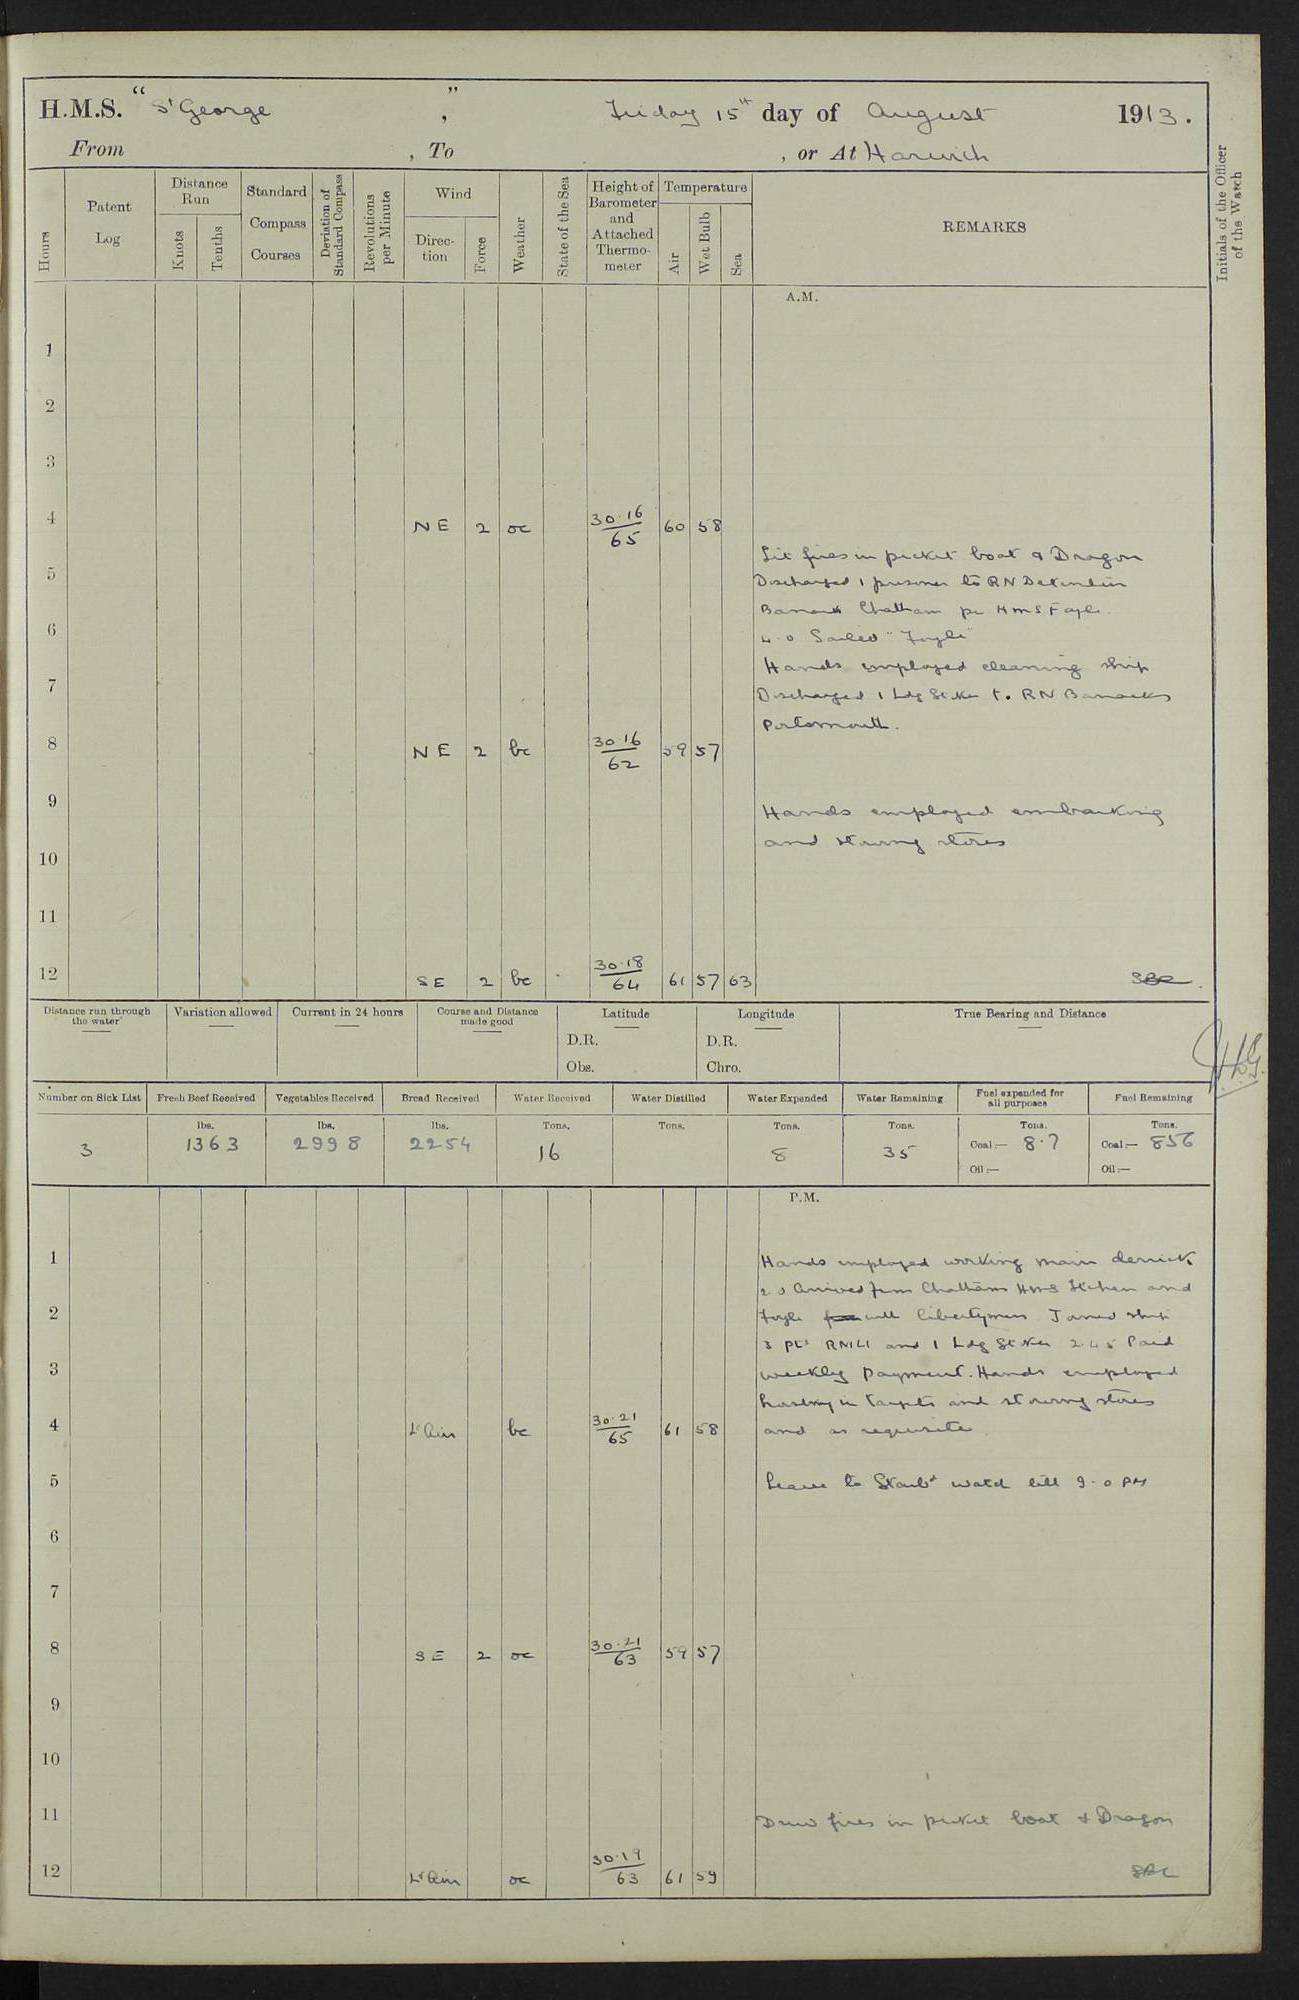 H.M.S. "St George", Friday 15th day of August 1913.
From , To , or At Harwich
Hours
Patent Log
Distance Run
Knots
Tenths
Standard Compass Courses
Deviation of Standard Compass
Revolutions per Minute
Wind
Direction
Force
Weather
State of the Sea
Height of Barometer and Attached Thermometer
Temperature
Air
Wet Bulb
Sea
REMARKS
Initials of the Officer of the Watch
A.M.
1
2
3
4 NE 2 oc 30.16/65 60 58
Lit fires in picket boat & Dragon
5
Discharged 1 prisoner to RN Detention
Barracks Chatham per HMS Foyle.
6
4.0 Sailed "Foyle"
Hands employed cleaning ship
7
Discharged 1 Ldg Stoker to RN Barracks
Portsmouth.
8 NE 2 bc 30.16/62 59 57
9
Hands employed embarking
and stowing stores
10
11
12 SE 2 bc 30.18/64 61 57 63
Distance run through the water
Variation allowed
Current in 24 hours
Course and Distance made good
Latitude
D.R.
Obs.
Longitude
D.R.
Chro.
True Bearing and Distance
Number on Sick List
Fresh Beef Received
Vegetables Received
Bread Received
Water Received
Water Distilled
Water Expended
Water Remaining
Fuel expended for all purposes
Fuel Remaining
lbs. lbs. lbs. Tons. Tons. Tons. Tons. Tons. Tons.
3 1363 2998 2254 16 8 35 Coal:— 8.7 Coal:— 856
Oil:— Oil:—
P.M.
1
Hands employed working main derrick.
2.0 Arrived from Chatham HMS Itchen and
2
Foyle with libertymen Joined ship
3 Pts RMLI and 1 Ldg Stoker 2.45 Paid
3
weekly payment. Hands employed
hoisting in targets and stowing stores
4 Lt Airs bc 30.21/65 61 58
and as requisite
5
Leave to Starbd watch till 9.0 PM
6
7
8 SE 2 oc 30.21/63 59 57
9
10
11
Drew fires in picket boat & Dragon
12 Lt Airs oc 30.19/63 61 59